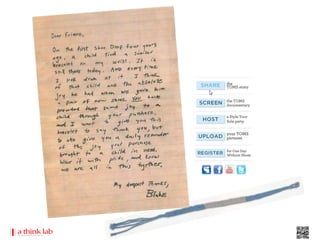 Dear Friend,
On the first Shoe Drop four years
ago, a child tied a similar
bracelet on my wrist. It is
still there today. And every time
I look down at it I think
of that child and the absolute
joy he had when we gave him
a pair of new shoes. You have
provided that same joy to a
child through your purchase,
and I want to give you this
bracelet to say thank you, but
to also give you a daily reminder
of the joy your purchase
brought to a child in need.
Wear it with pride, and know
we are all in this together.
My deepest thanks,
Blake
SHARE the TOMS story
SCREEN the TOMS documentary
HOST a Style Your Sole party
UPLOAD your TOMS pictures
REGISTER for One Day Without Shoes
a think lab